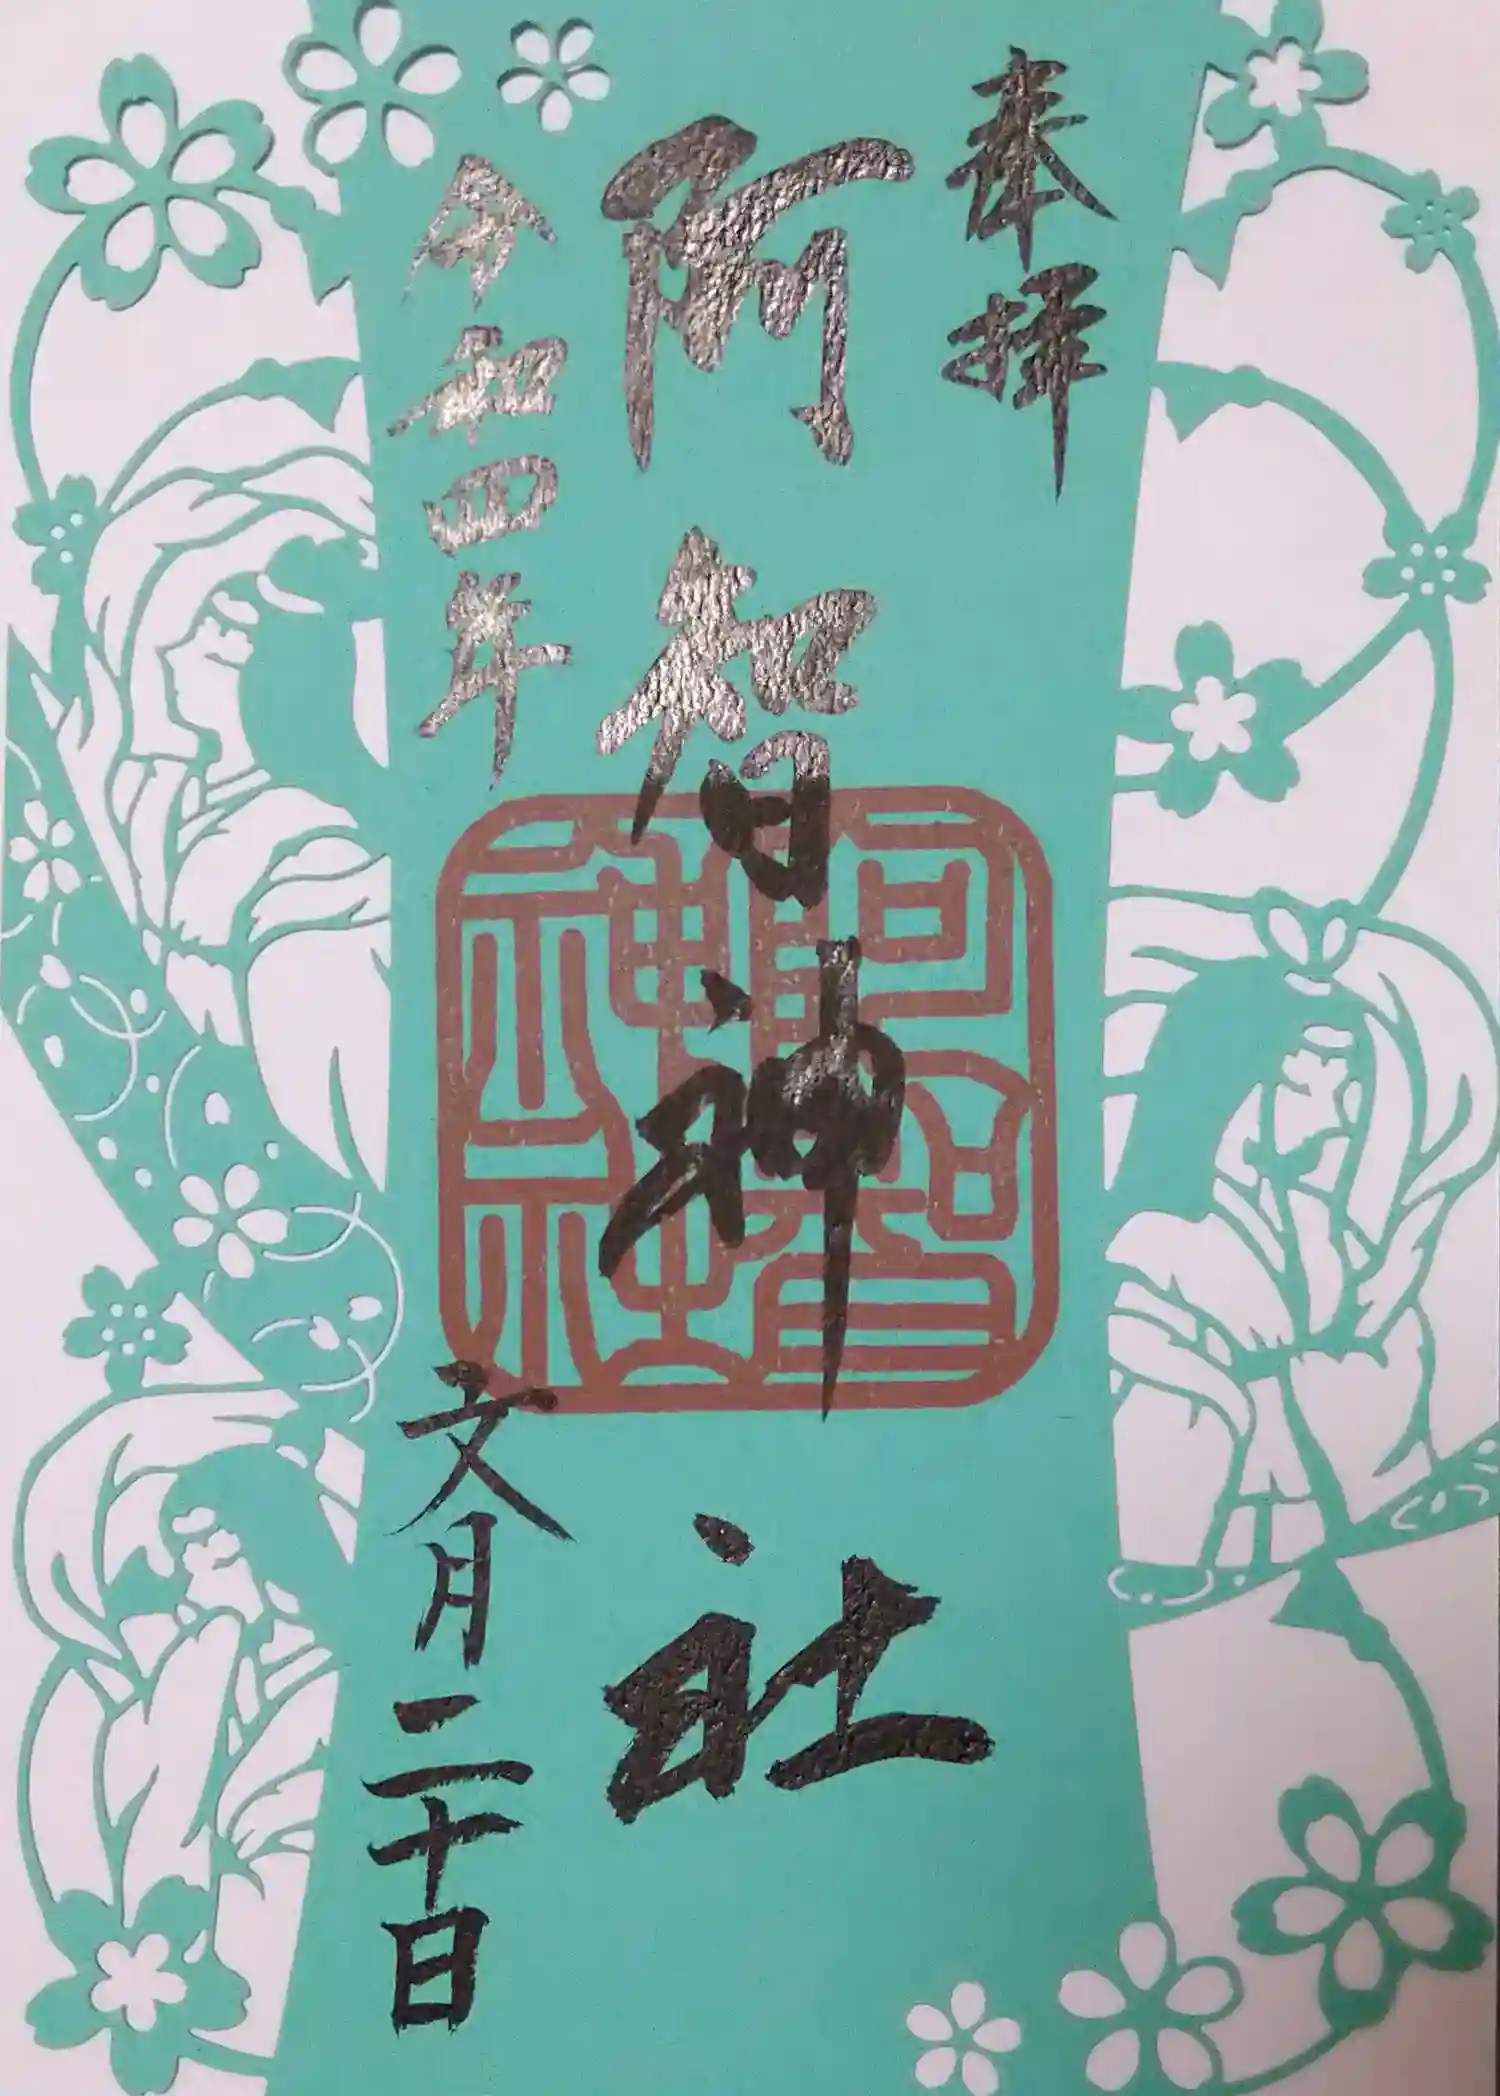 奉拝
阿智神社
阿智神社
令和四年
文月二十日